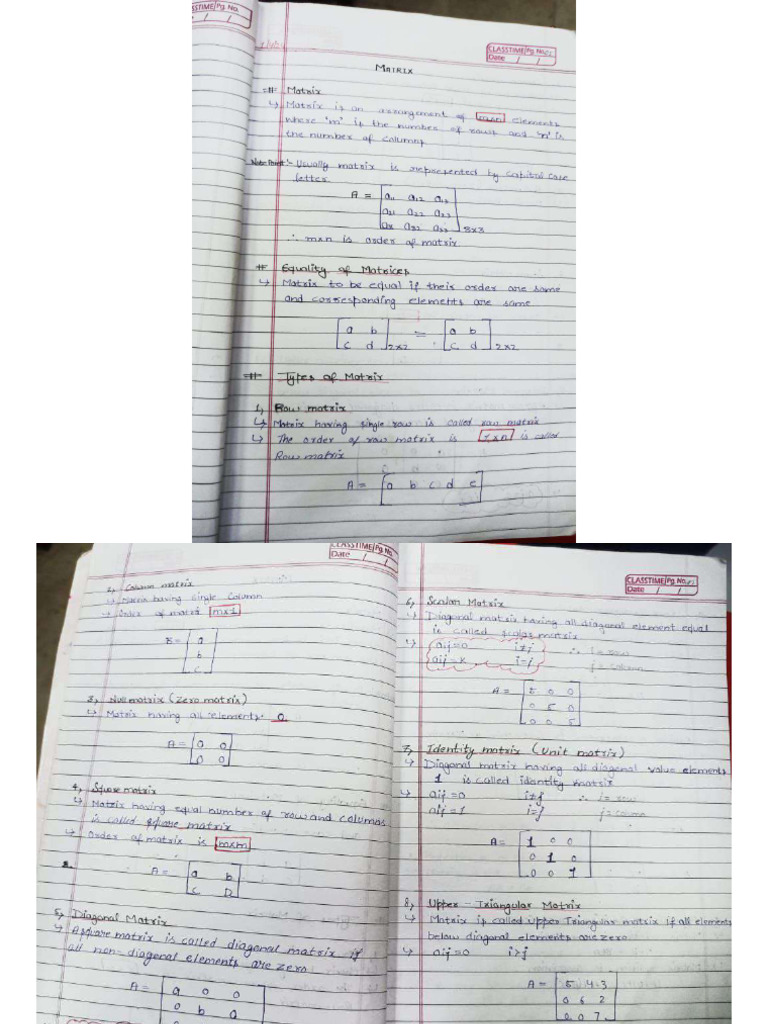 CLASSTIME Pg. No.
Date / /
MATRIX
# Matrix
↳ Matrix is an arrangement of m×n elements
where 'm' is the number of rows and 'n' is
the number of columns
Note Point :- Usually matrix is represented by capital case
letter
A = [a11 a12 a13
a21 a22 a23
a32 a33] 3x3
∴ m×n is order of matrix
# Equality of Matrices
↳ Matrix to be equal if their order are same
and corresponding elements are same
[a b = [a b
c d] 2x2 c d] 2x2
# Types of Matrix
1, Row matrix
↳ Matrix having single row is called row matrix
↳ The order of row matrix is 1×n is called
Row matrix
A = [a b c d e]
CLASSTIME Pg. No.
Date / /
2, Column matrix
↳ Matrix having single Column
↳ Order of matrix m×1
B = [a
b
c]
3, Null matrix (Zero matrix)
↳ Matrix having all elements 0
A = [0 0
0 0]
4, Square matrix
↳ Matrix having equal number of row and columns
is called square matrix
↳ Order of matrix is m×m
A = [a b
c D]
5, Diagonal Matrix
↳ A square matrix is called diagonal matrix if
all non-diagonal elements are zero.
A = [a 0 0
0 b 0
0 0
CLASSTIME Pg. No.
Date / /
6, Scalar Matrix
↳ Diagonal matrix having all diagonal element equal
is called scalar matrix
↳ aij=0 i≠j ∴ i = row
aij=k i=j j = column
A = [5 0 0
0 5 0
0 0 5]
7, Identity matrix (Unit matrix)
↳ Diagonal matrix having all diagonal value elements
1 is called identity matrix
↳ aij=0 i≠j ∴ i = row
aij=1 i=j j=column
A = [1 0 0
0 1 0
0 0 1]
8, Upper - Triangular Matrix
↳ Matrix is called Upper Triangular matrix if all elements
below diagonal elements are zero
↳ aij=0 i>j
A = [5 4 3
0 6 2
0 0 7]